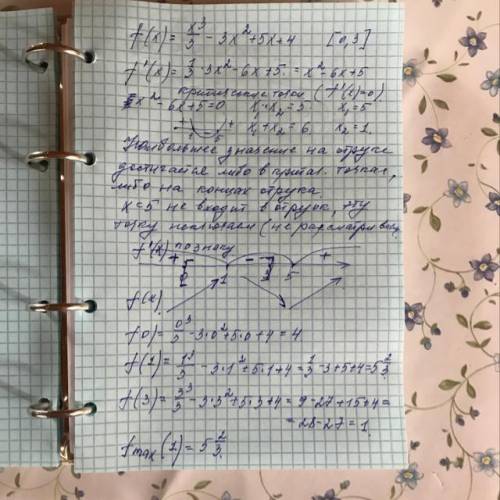 f(x) = x³/3 - 3x² + 5x + 4 [0,3]
f'(x) = 1/3 · 3x² - 6x + 5 = x² - 6x + 5
критические точки (f'(x)=0)
x² - 6x + 5 = 0 x₁·x₂ = 5 x₁ = 5
x₁ + x₂ = 6 x₂ = 1.
+ - +
Наибольшее значение на отрезке
достигается либо в критич. точках,
либо на концах отрезка
x = 5 не входит в отрезок, эту
точку исключаем (не рассматриваем
f'(x) по знаку
+ - +
0 1 3 5
f(x)
f(0) = 0³/3 - 3·0² + 5·0 + 4 = 4
f(1) = 1³/3 - 3·1² + 5·1 + 4 = 1/3 - 3 + 5 + 4 = 5 2/3.
f(3) = 3³/3 - 3·3² + 5·3 + 4 = 9 - 27 + 15 + 4 =
= 28 - 27 = 1.
fmax(1) = 5 2/3.